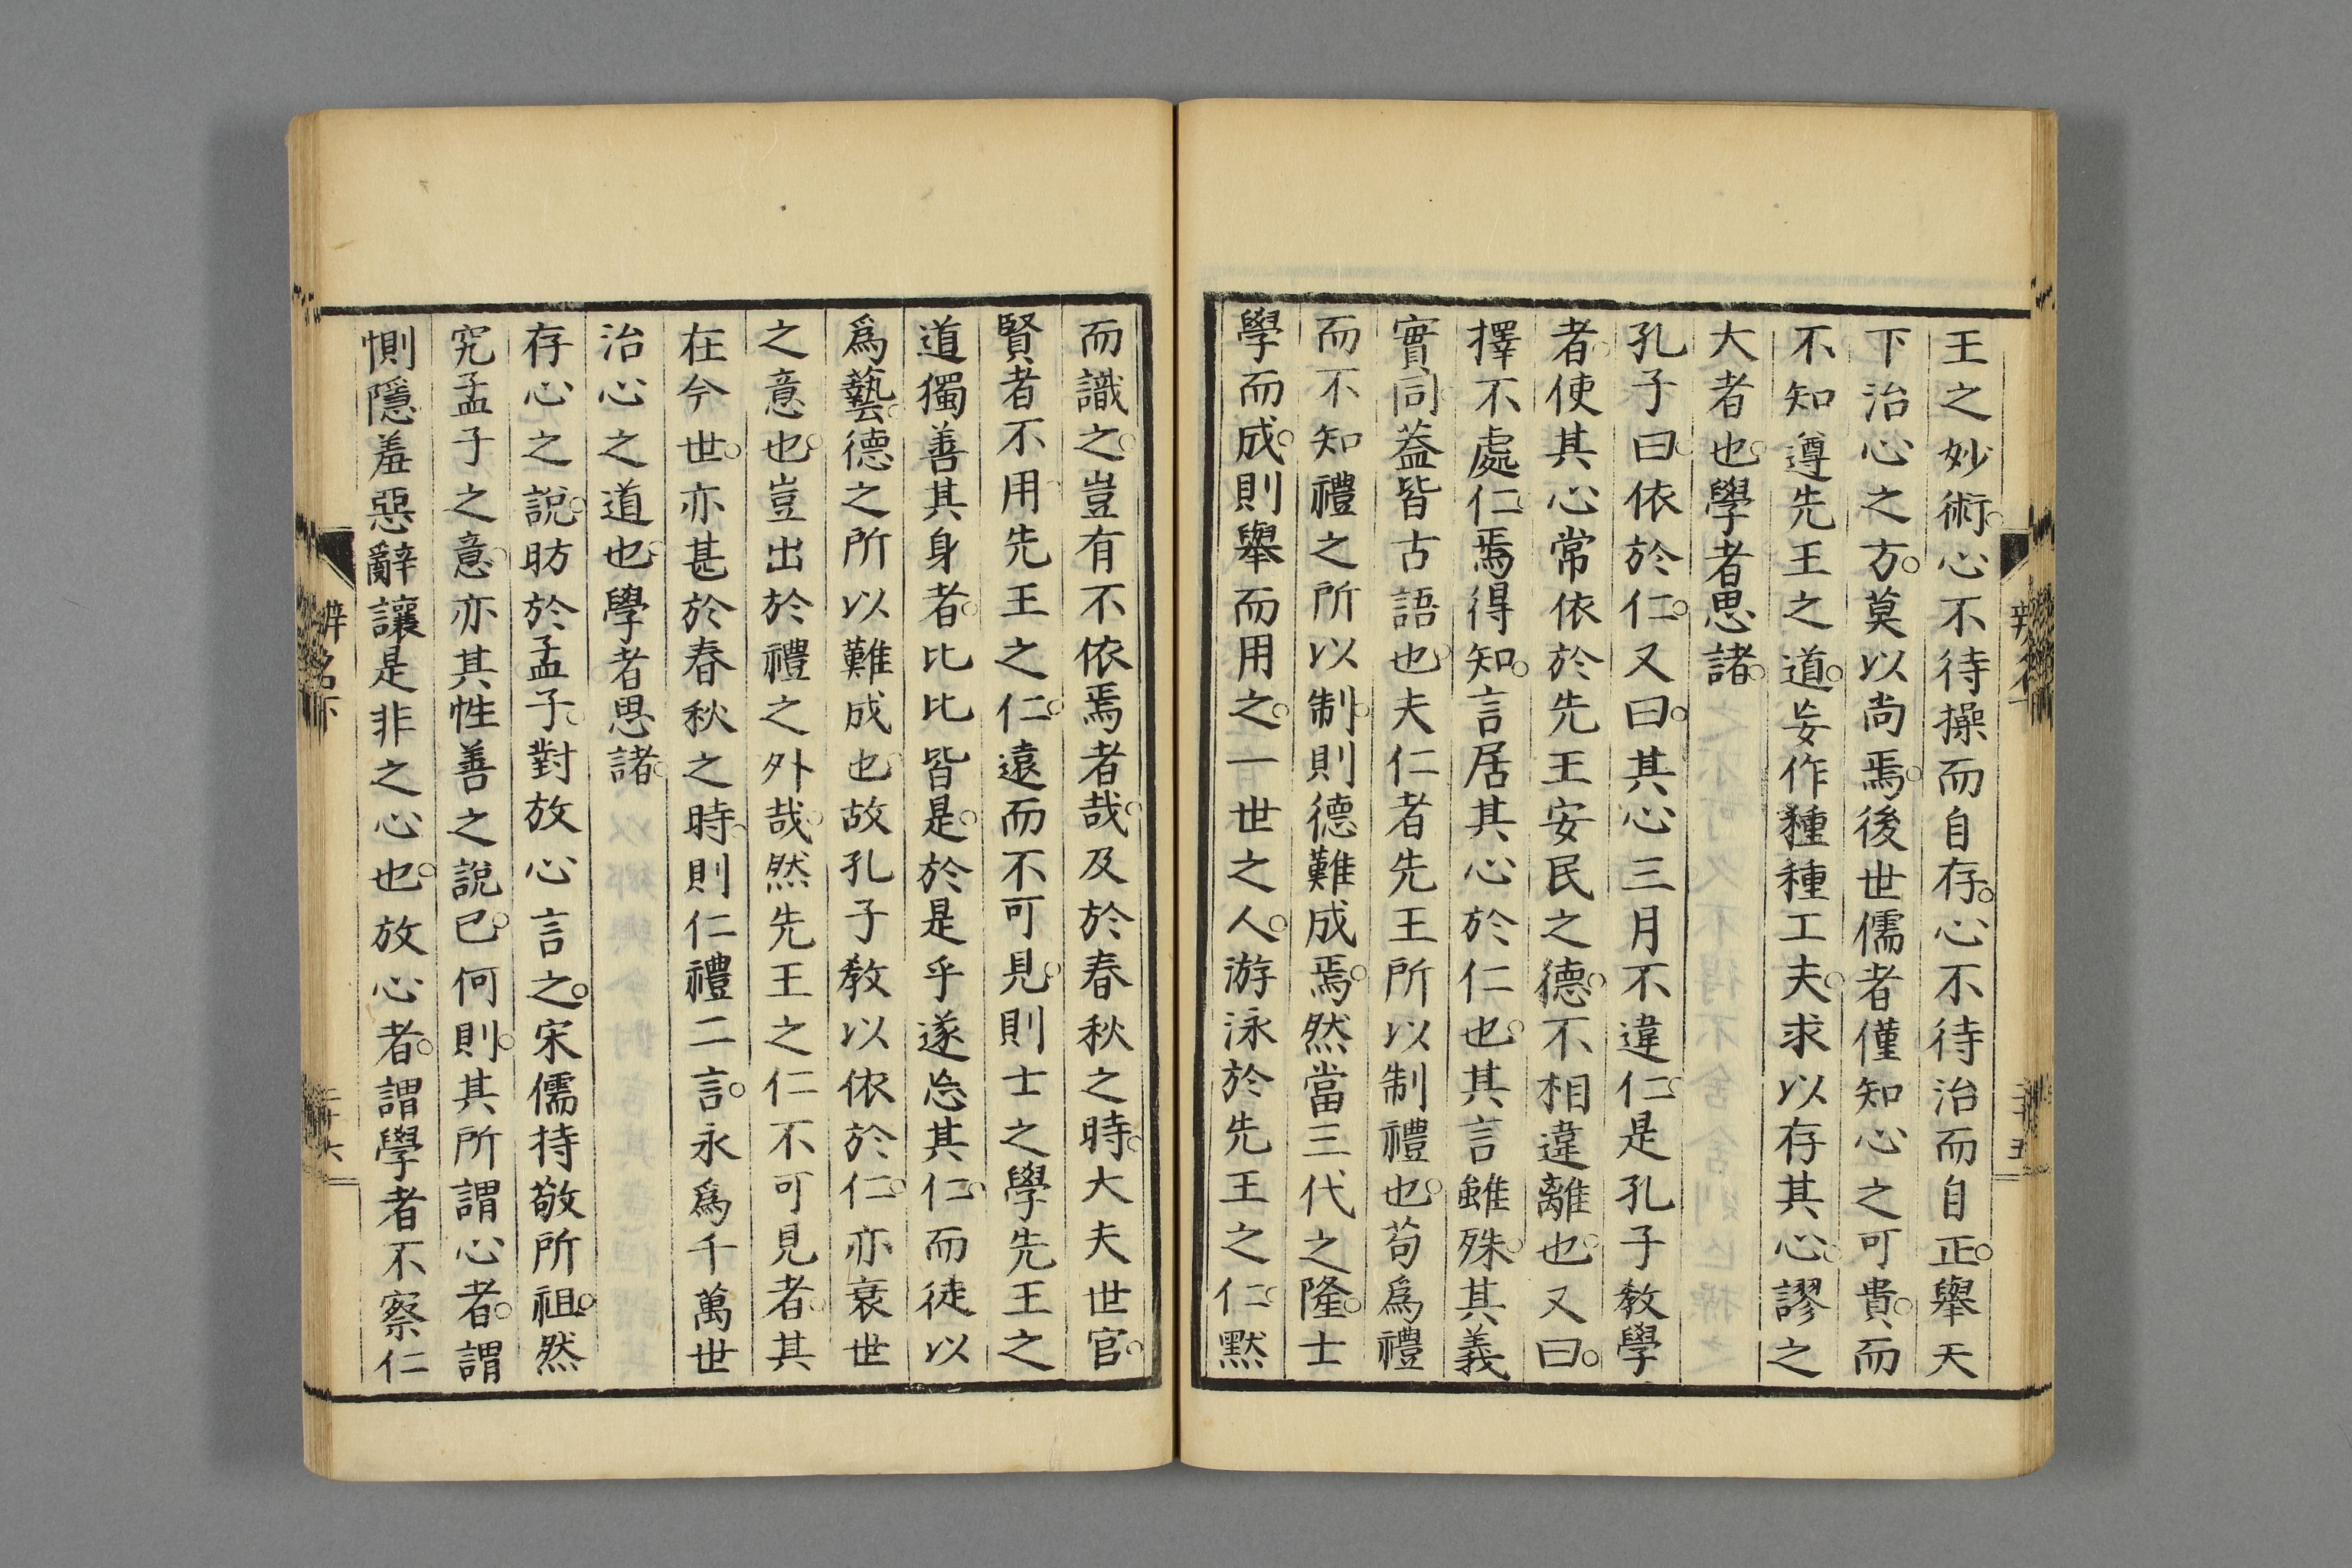 王之妙術。心不待操而自存。心不待治而自正。舉天
下治心之方。莫以尚焉。後世儒者僅知心之可貴。而
不知遵先王之道。妄作種種工夫。求以存其心。謬之
大者也。學者思諸。
孔子曰。依於仁。又曰。其心三月不違仁。是孔子教學
者。使其心常依於先王安民之德。不相違離也。又曰。
擇不處仁。焉得知。言居其心於仁也。其言雖殊。其義
實同。蓋皆古語也。夫仁者先王所以制禮也。苟爲禮
而不知禮之所以制。則德難成焉。然當三代之隆。士
學而成。則舉而用之。一世之人。游泳於先王之仁。默
而識之。豈有不依焉者哉。及於春秋之時。大夫世官。
賢者不用。先王之仁。遠而不可見。則士之學先王之
道獨善其身者。比比皆是。於是乎遂忘其仁。而徒以
爲藝。德之所以難成也。故孔子教以依於仁。亦衰世
之意也。豈出於禮之外哉。然先王之仁不可見者。其
在今世。亦甚於春秋之時。則仁禮二言。永爲千萬世
治心之道也。學者思諸。
存心之說。昉於孟子。對放心言之。宋儒持敬所祖。然
究孟子之意。亦其性善之說已。何則。其所謂心者。謂
惻隱羞惡辭讓是非之心也。放心者。謂學者不察仁
辨名下